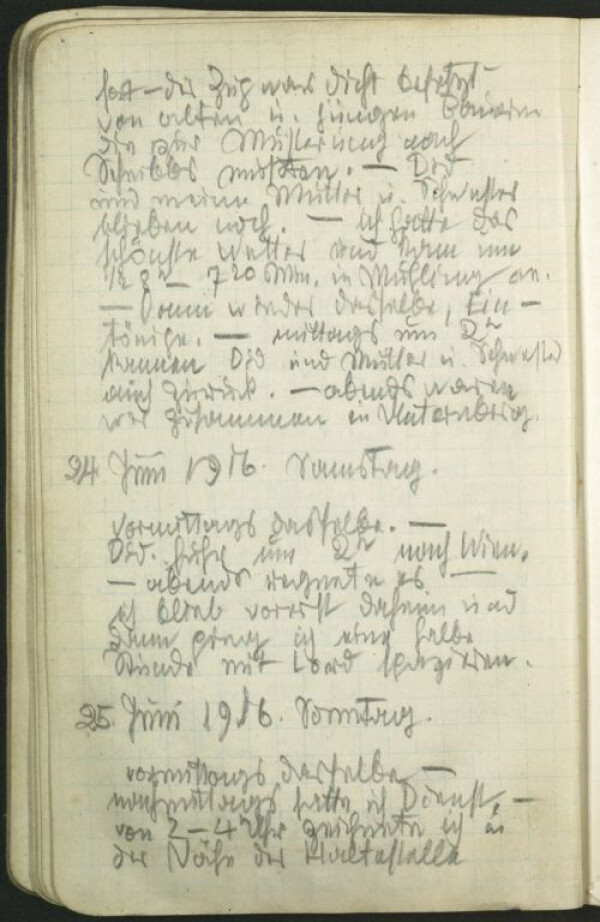 fort – der Zug war dicht besetzt
von alten u. jungen Bauern
die zur Musterung nach
Scheibbs mussten. – Did
und meine Mutter u. Schwester
blieben noch. – ich hatte das
schönste Wetter und kam um
7 20 Min. in Mühling an.
– Dann wieder dasselbe, Ein-
tönige. – mittags um 2h
kamen Did und Mutter u. Schwester
auch zurück. – abends waren
wir zusammen in Unternberg.
24. Juni 1916. Samstag.
vormittags dasselbe. –
Did. fuhr um 2h nach Wien.
– abends regnete es –
ich blieb vorerst daheim und
dann gieng ich eine halbe
Stunde mit Lord spazieren.
25. Juni 1916. Sonntag.
vormittags dasselbe –
nachmittags hatte ich Dienst, –
von 2 – 4 Uhr zeichnete ich in
der Nähe der Haltestelle